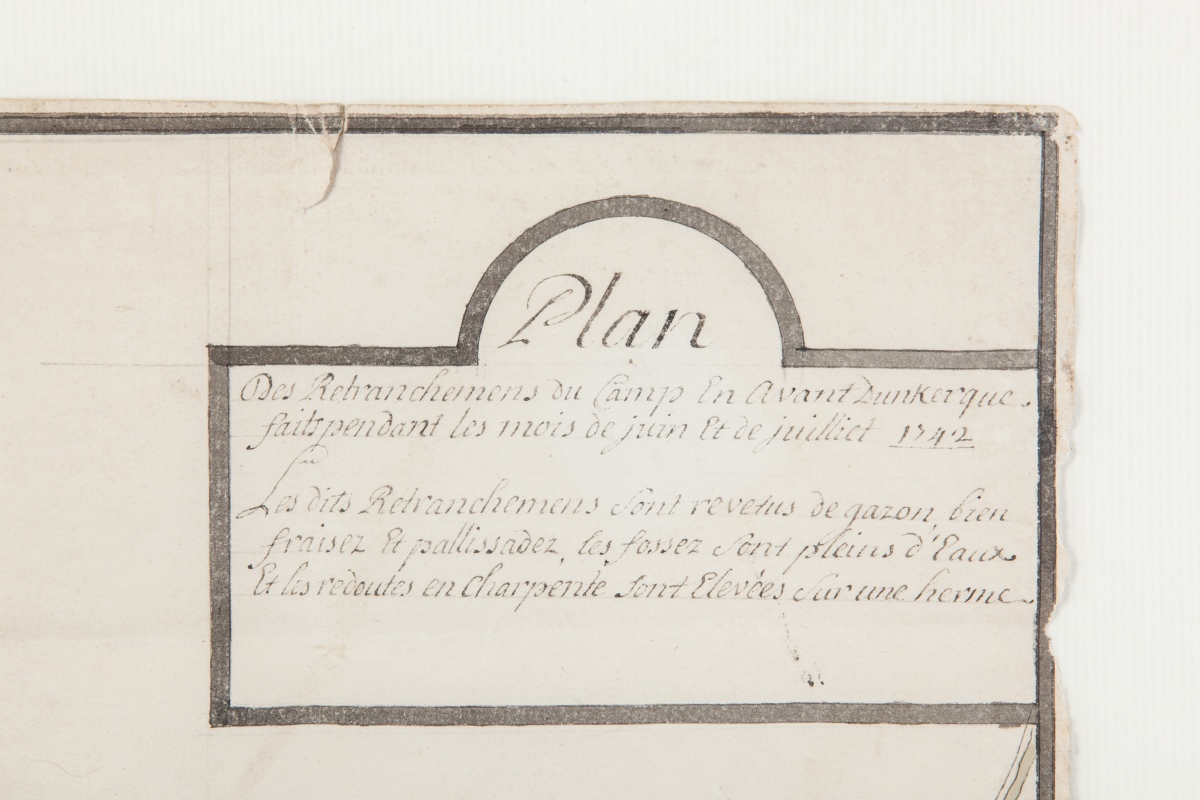 Plan
Des Retranchemens du Camp En Avant Dunkerque.
faits pendant les mois de juin Et de juilliet 1742
Les dits Retranchemens sont revetus de gazon, bien
fraisez Et pallissadez, les fossez sont pleins d'Eaux
Et les redoutes en charpente sont Elevées sur une berme